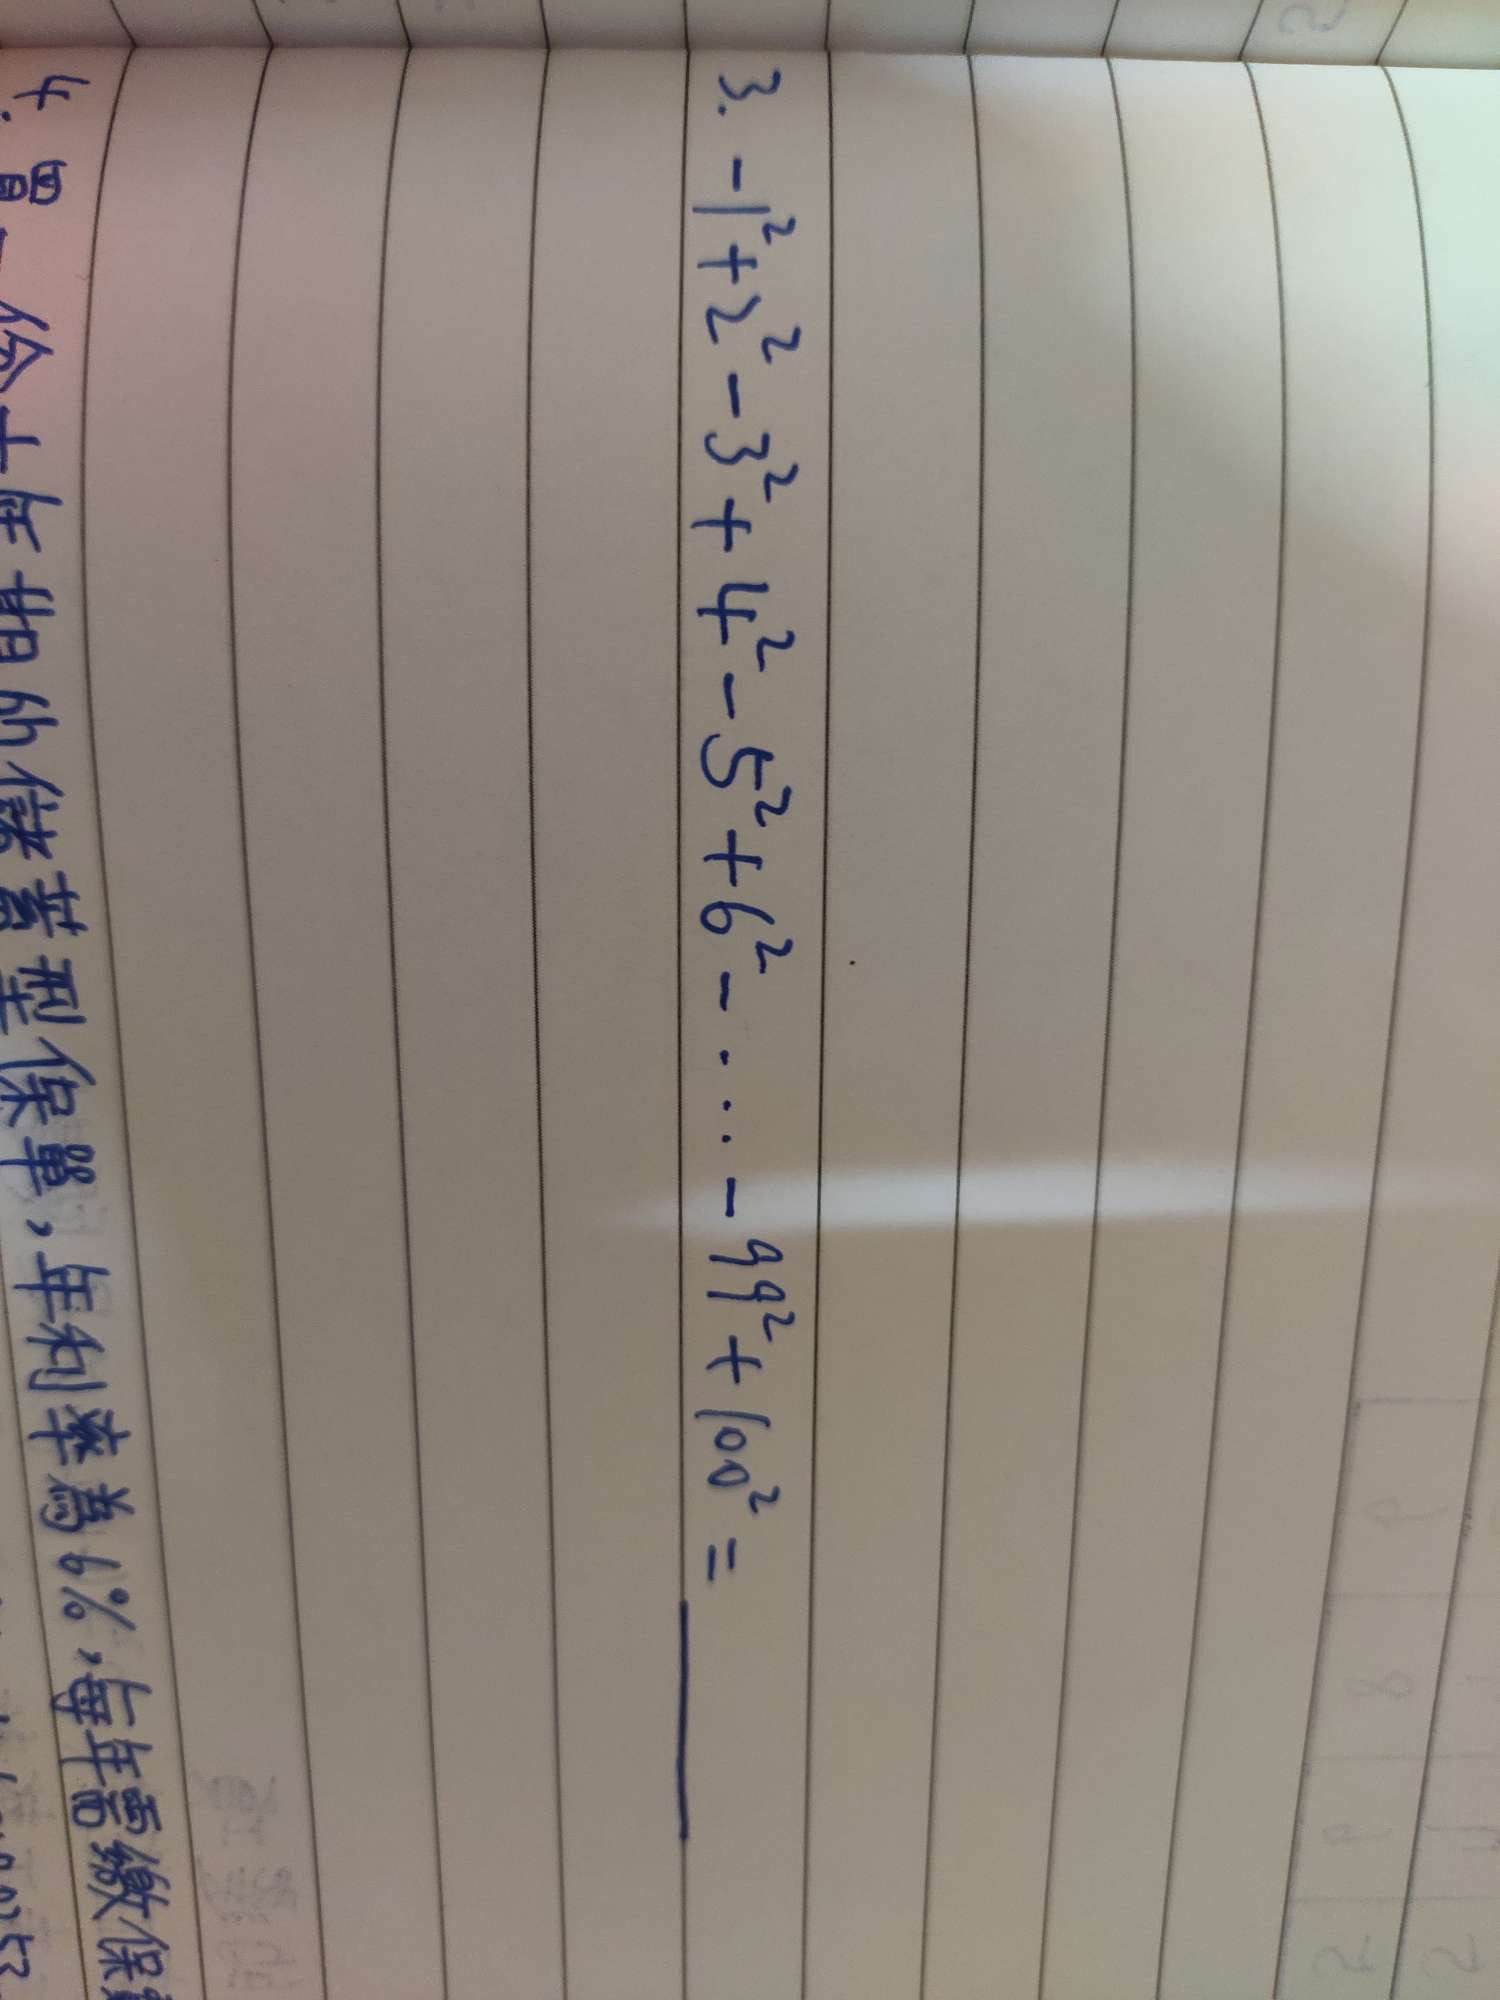 3. -1²+2²-3²+4²-5²+6²-...-99²+100²=
4. 買一份十年期的儲蓄型保單,年利率為6%,每年需繳保